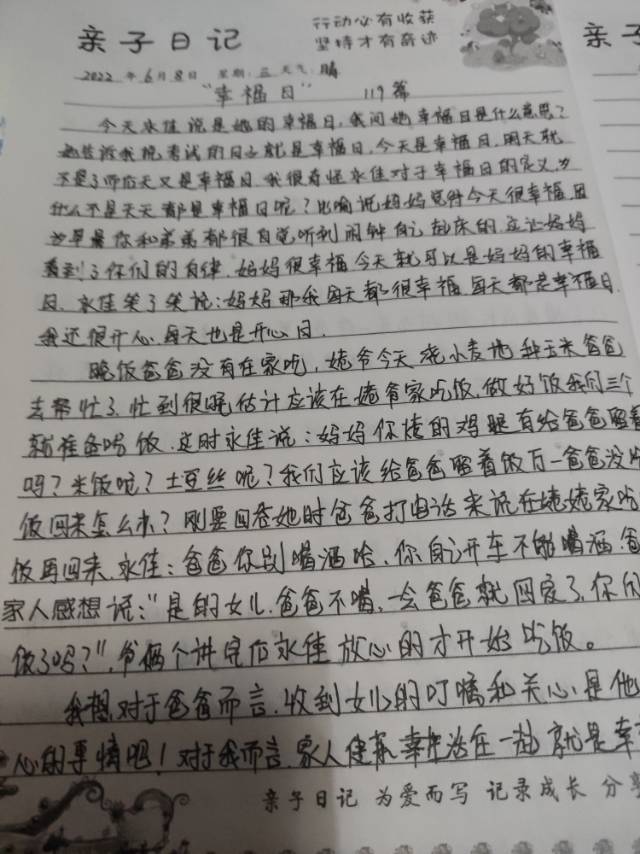 亲子日记
行动必有收获
坚持才有奇迹
亲子
2022年6月8日 星期:三 天气:晴
“幸福日” 119篇
今天永佳说是她的幸福日,我问她幸福日是什么意思?
她告诉我说考试的日子就是幸福日,今天是幸福日,明天就
不是了而后天又是幸福日,我很奇怪永佳对于幸福日的定义,为
什么不是天天都是幸福日呢?比喻说妈妈觉得今天很幸福,因
为早晨你和弟弟都很自觉听到闹钟自己起床的,这让妈妈
看到了你们的自律,妈妈很幸福今天就可以是妈妈的幸福
日,永佳笑了笑说:妈妈那我每天都很幸福,每天都是幸福日,
我还很开心,每天也是开心日.
晚饭爸爸没有在家吃,姥爷今天浇小麦地种玉米爸爸
去帮忙了,忙到很晚估计应该在姥爷家吃饭,做好饭我们三个
就准备吃饭,这时永佳说:妈妈你炖的鸡腿有给爸爸留着
吗?米饭呢?土豆丝呢?我们应该给爸爸留着饭万一爸爸没吃
饭回来怎么办?刚要回答她时爸爸打电话来说在姥姥家吃
饭再回来,永佳:爸爸你别喝酒哈,你自己开车不能喝酒,爸
家人感想 说:“是的女儿,爸爸不喝,一会爸爸就回家了,你们
饭了吗?”,爷俩个讲完后永佳放心的才开始吃饭。
我想对于爸爸而言,收到女儿的叮嘱和关心是他
心的事情吧!对于我而言,家人健康幸 生活在一起就是幸
亲子日记 为爱而写 记录成长 分享